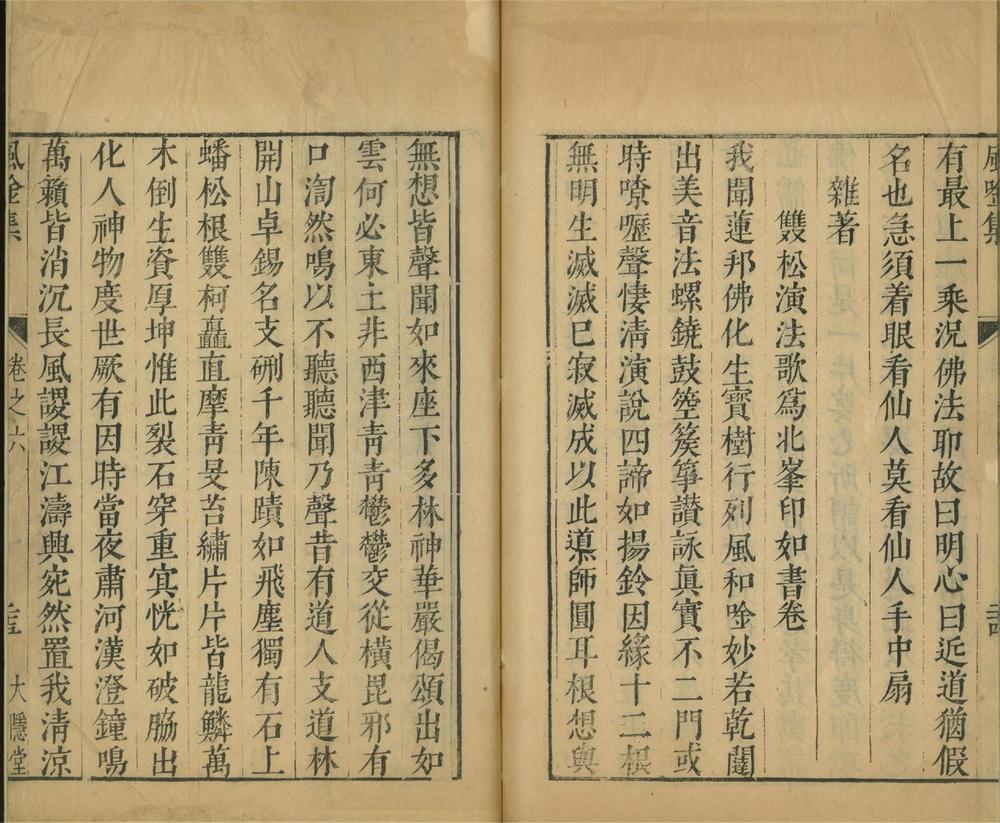 有最上一乘況佛法耶故曰明心曰近道猶假
名也急須着眼看仙人莫看仙人手中扇
雜著
雙松演法歌爲北峯印如書卷
我聞蓮邦佛化生寶樹行列風和唫妙若乾闥
出美音法螺鐃鼓箜篌箏讃詠眞實不二門或
時嘹嚦聲悽淸演說四諦如揚鈴因緣十二根
無明生滅滅已寂滅成以此導師圓耳根想與
無想皆聲聞如來座下多林神華嚴偈頌出如
雲何必東土非西津靑靑鬱鬱交從橫毘邪有
口訇然鳴以不聽聽聞乃聲昔有道人支道林
開山卓錫名支硎千年陳蹟如飛塵獨有石上
蟠松根雙柯矗直摩靑旻苔繡片片皆龍鱗萬
木倒生資厚坤惟此裂石穿重㝠恍如破脇出
化人神物度世厥有因時當夜肅河漢澄鐘鳴
萬籟皆消沉長風謖謖江濤興宛然置我淸涼
卷之六
大隱堂